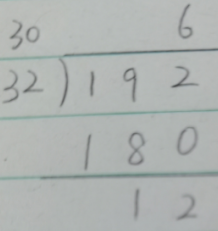 30 6
32)192
180
12